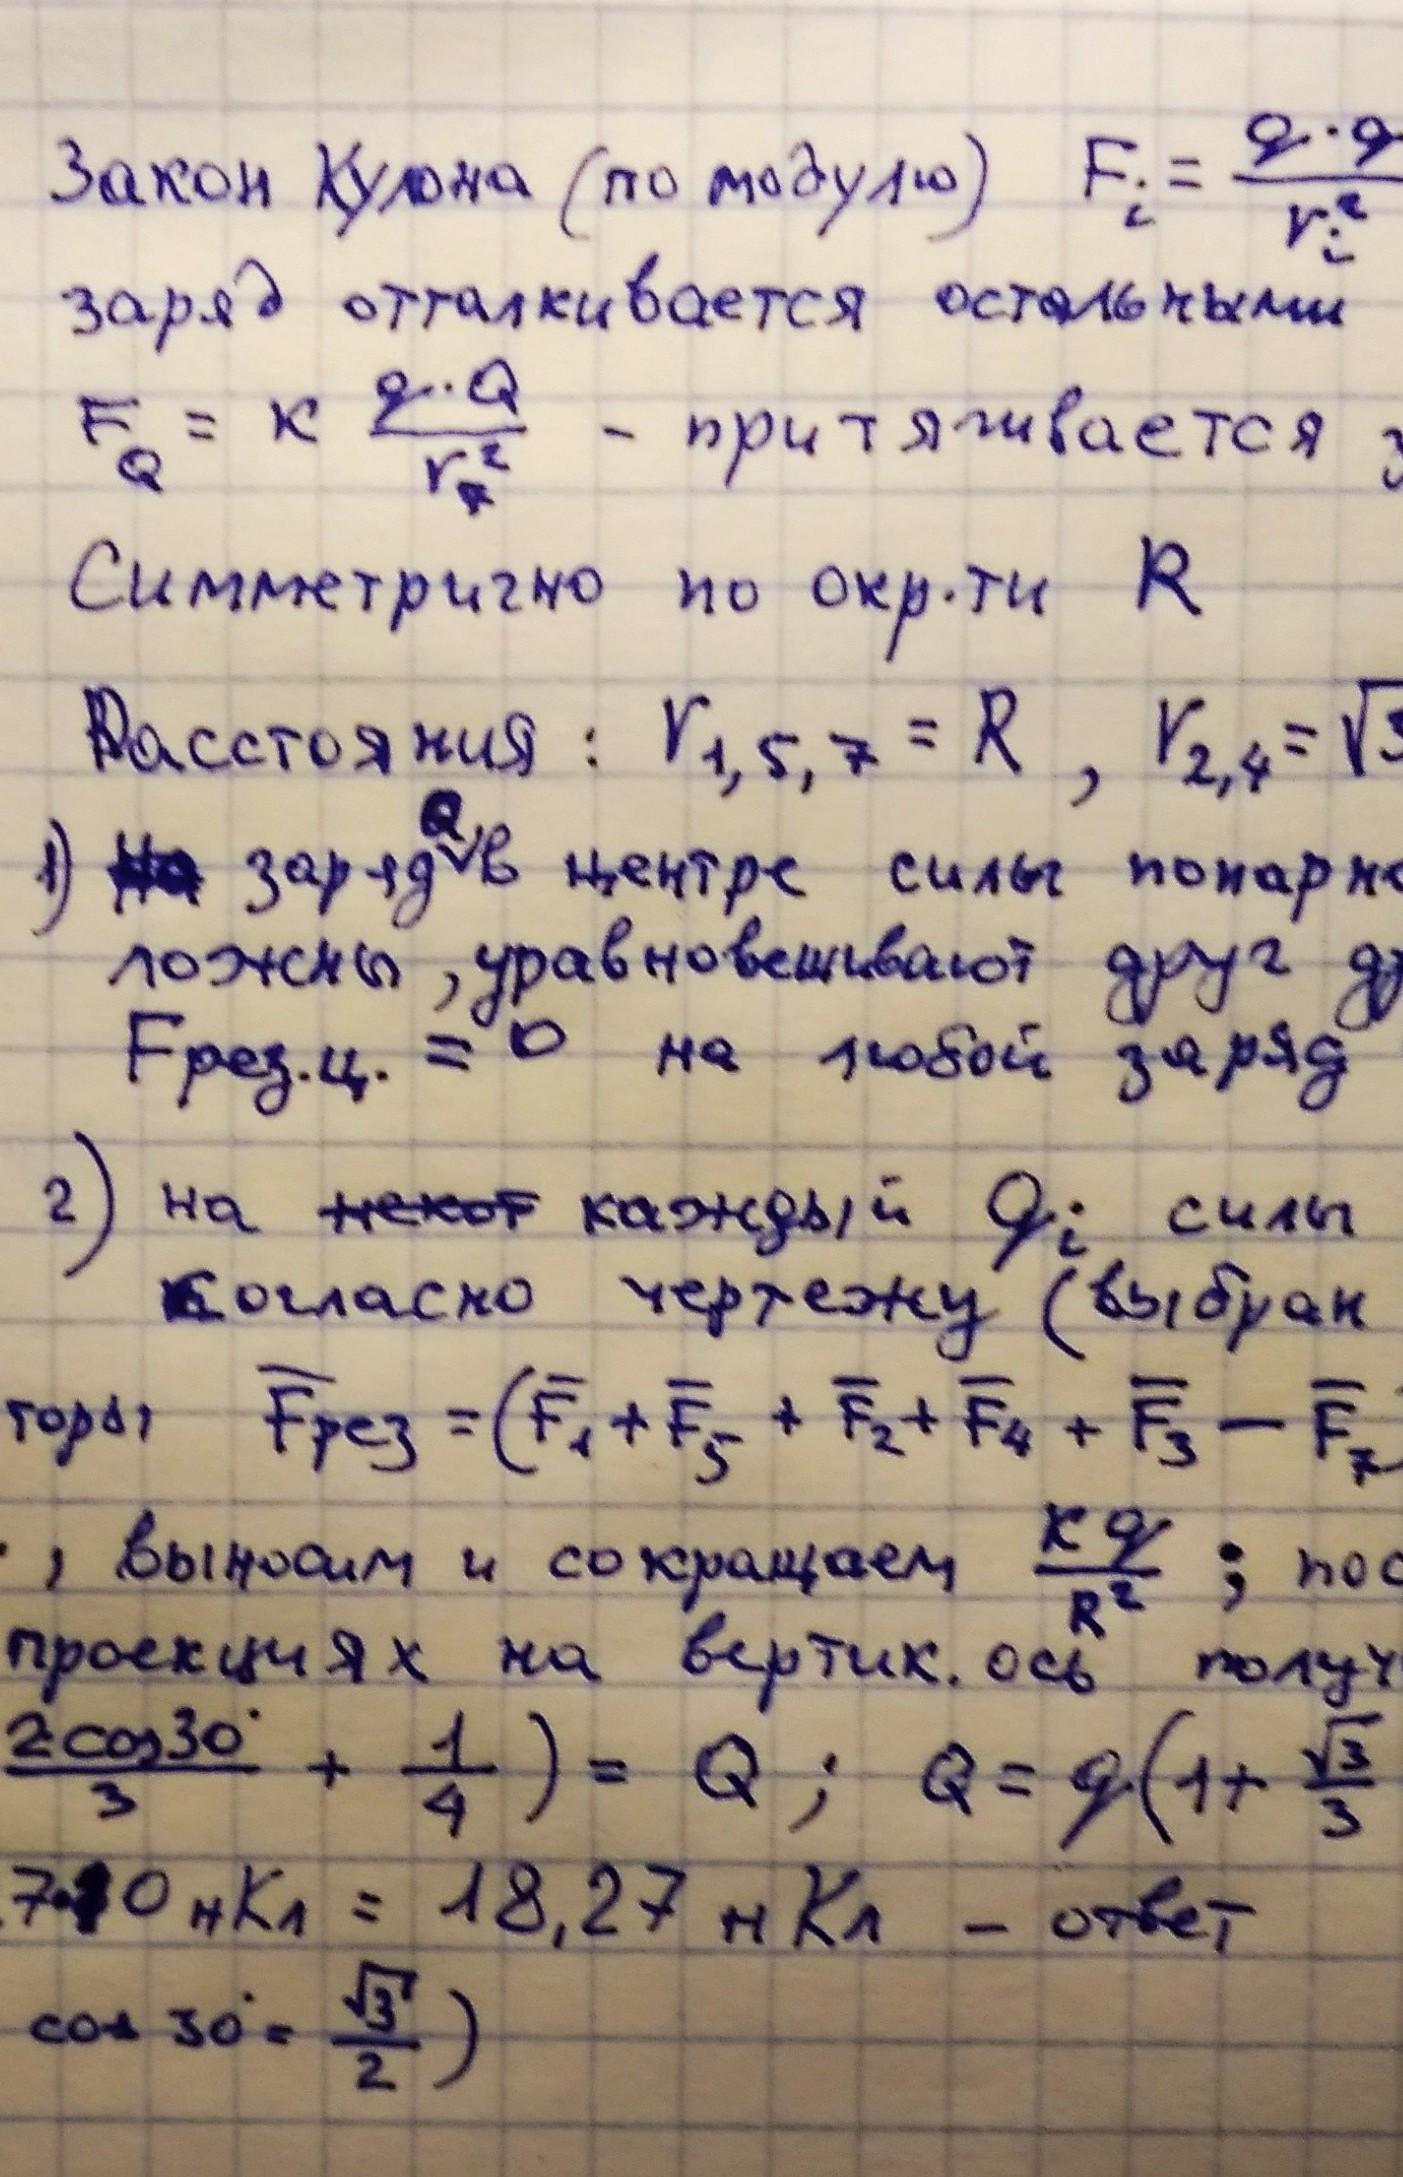 Закон Кулона (по модулю) Fᵢ = q·q / rᵢ²
заряд отталкивается остальными
F_Q = к q·Q / r₇² - притягивается з
Симметрично по окр.ти R
Расстояния : r₁,₅,₇ = R , r₂,₄ = √3
1) заряд Q в центре силы попарно
ложны, уравновешивают друг др
Fрез.ц. = 0 на любой заряд
2) на каждый qᵢ силы
согласно чертежу (выбран
торы F̅рез = (F̅₁ + F̅₅ + F̅₂ + F̅₄ + F̅₃ − F̅₇)
, выносим и сокращаем кq / R² ; пос
проекциях на вертик. ось получ
2cos30° / 3 + 1/4 ) = Q ; Q = q(1 + √3 / 3
7·10 нКл = 18,27 нКл − ответ
cos 30° = √3 / 2 )